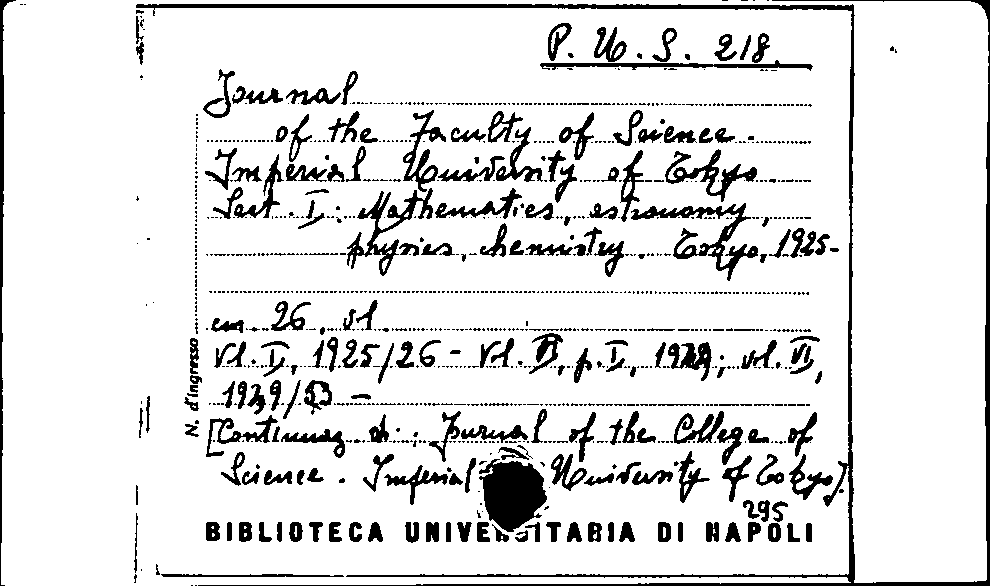 P. U. S. 218.
Journal
of the Faculty of Science.
Imperial University of Tokyo.
Sect. I: Mathematics, astronomy,
physics, chemistry. Tokyo, 1925-
cm. 26, vl.
Vl. I, 1925/26 - Vl. , p. I, ; vl. VI,
/53 -
[Continuaz. di: Journal of the College of
Science. Imperial University of Tokyo].
295
N. d'ingresso
BIBLIOTECA UNIVERSITARIA DI NAPOLI